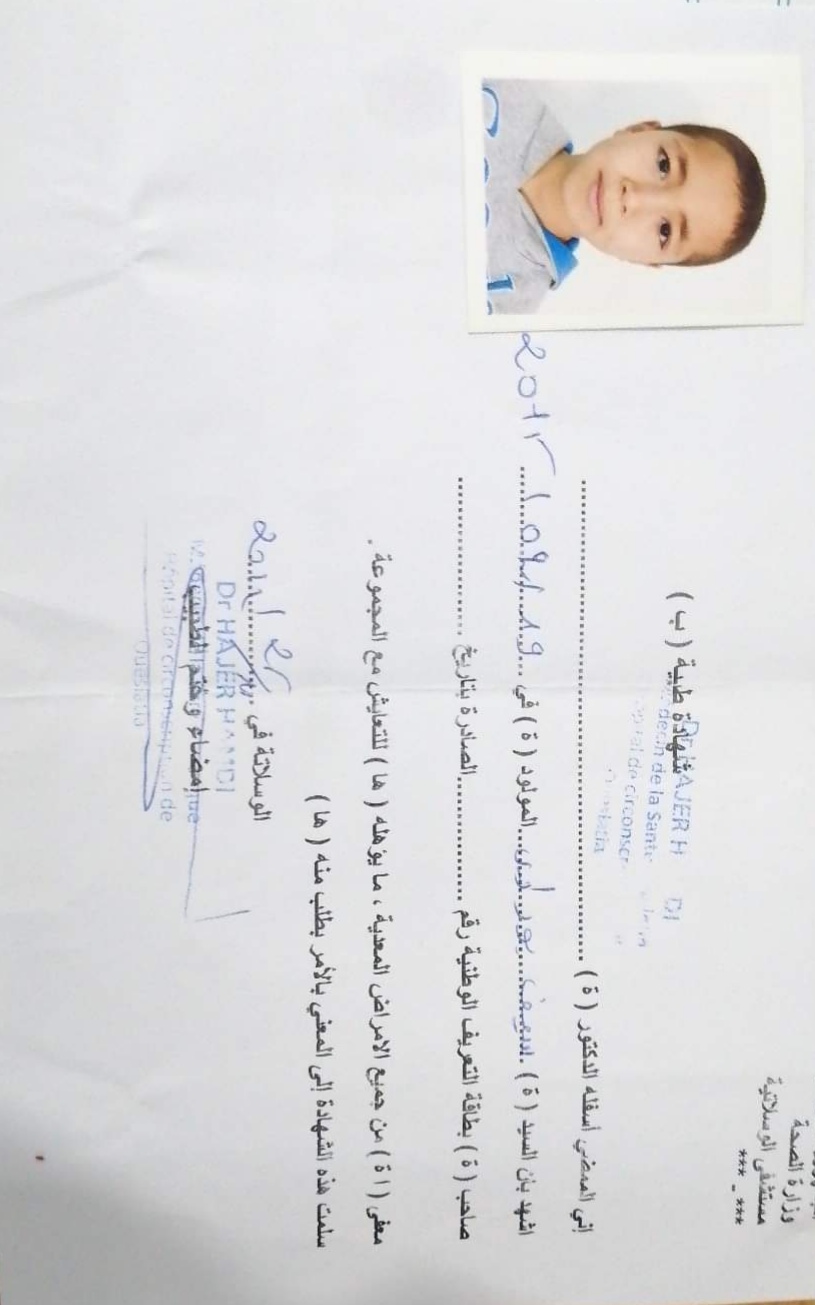 وزارة الصحة
مستشفى الوسلاتية
*** - ***
شهادة طبية ( ب )
Dr HAJER H DI
decin de la Sante
de circonscr
إني الممضي أسفله الدكتور ( ة ) ........................................
أشهد بأن السيد ( ة ) ........ المولود ( ة ) في 19/09/2012
صاحب ( ة ) بطاقة التعريف الوطنية رقم ................ الصادرة بتاريخ ................
معفى ( ا ة ) من جميع الأمراض المعدية ، ما يؤهله ( ها ) للتعايش مع المجموعة .
سلمت هذه الشهادة إلى المعني بالأمر بطلب منه ( ها )
الوسلاتة في
Dr HAJER HAMDI
إمضاء وختم الطبيب
Hôpital de circonscription de
Oueslatia